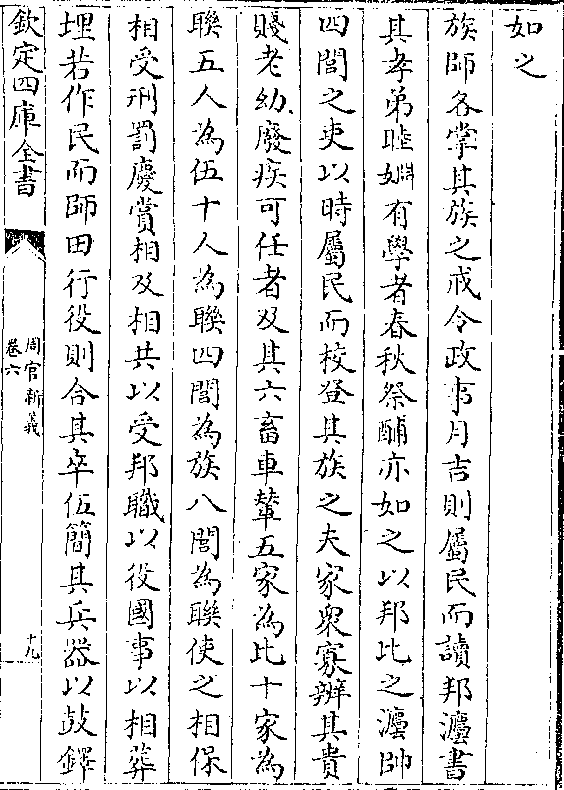 如之
族師各掌其族之戒令政事月吉則屬民而讀邦灋書
其孝弟睦婣有學者春秋祭酺亦如之以邦比之灋帥
四閭之吏以時屬民而校登其族之夫家衆寡辨其貴
賤老幼廢疾可任者及其六畜車輦五家為比十家為
聯五人為伍十人為聯四閭為族八閭為聯使之相保
相受刑罰慶賞相及相共以受邦職以役國事以相葬
埋若作民而師田行役則合其卒伍簡其兵器以鼓鐸
欽定四庫全書
周官新義
卷六
十九